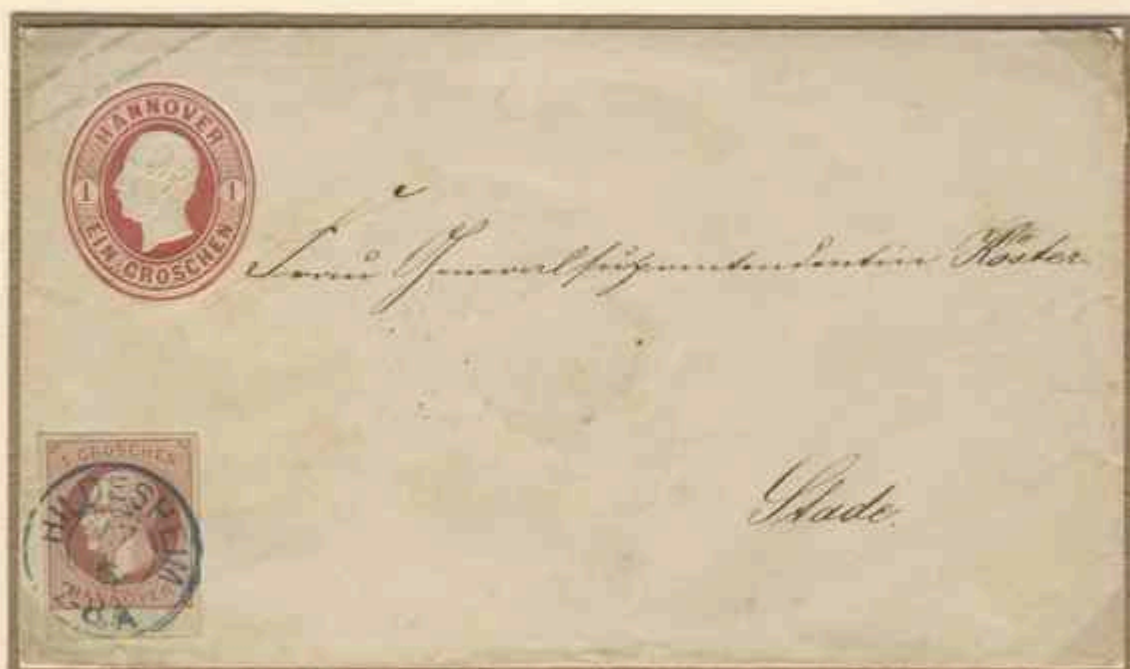 HANNOVER
1 1
EIN GROSCHEN
Frau Generalsuperintendentin Köster
Stade.
1 GROSCHEN
HANNOVER
HILDESHEIM